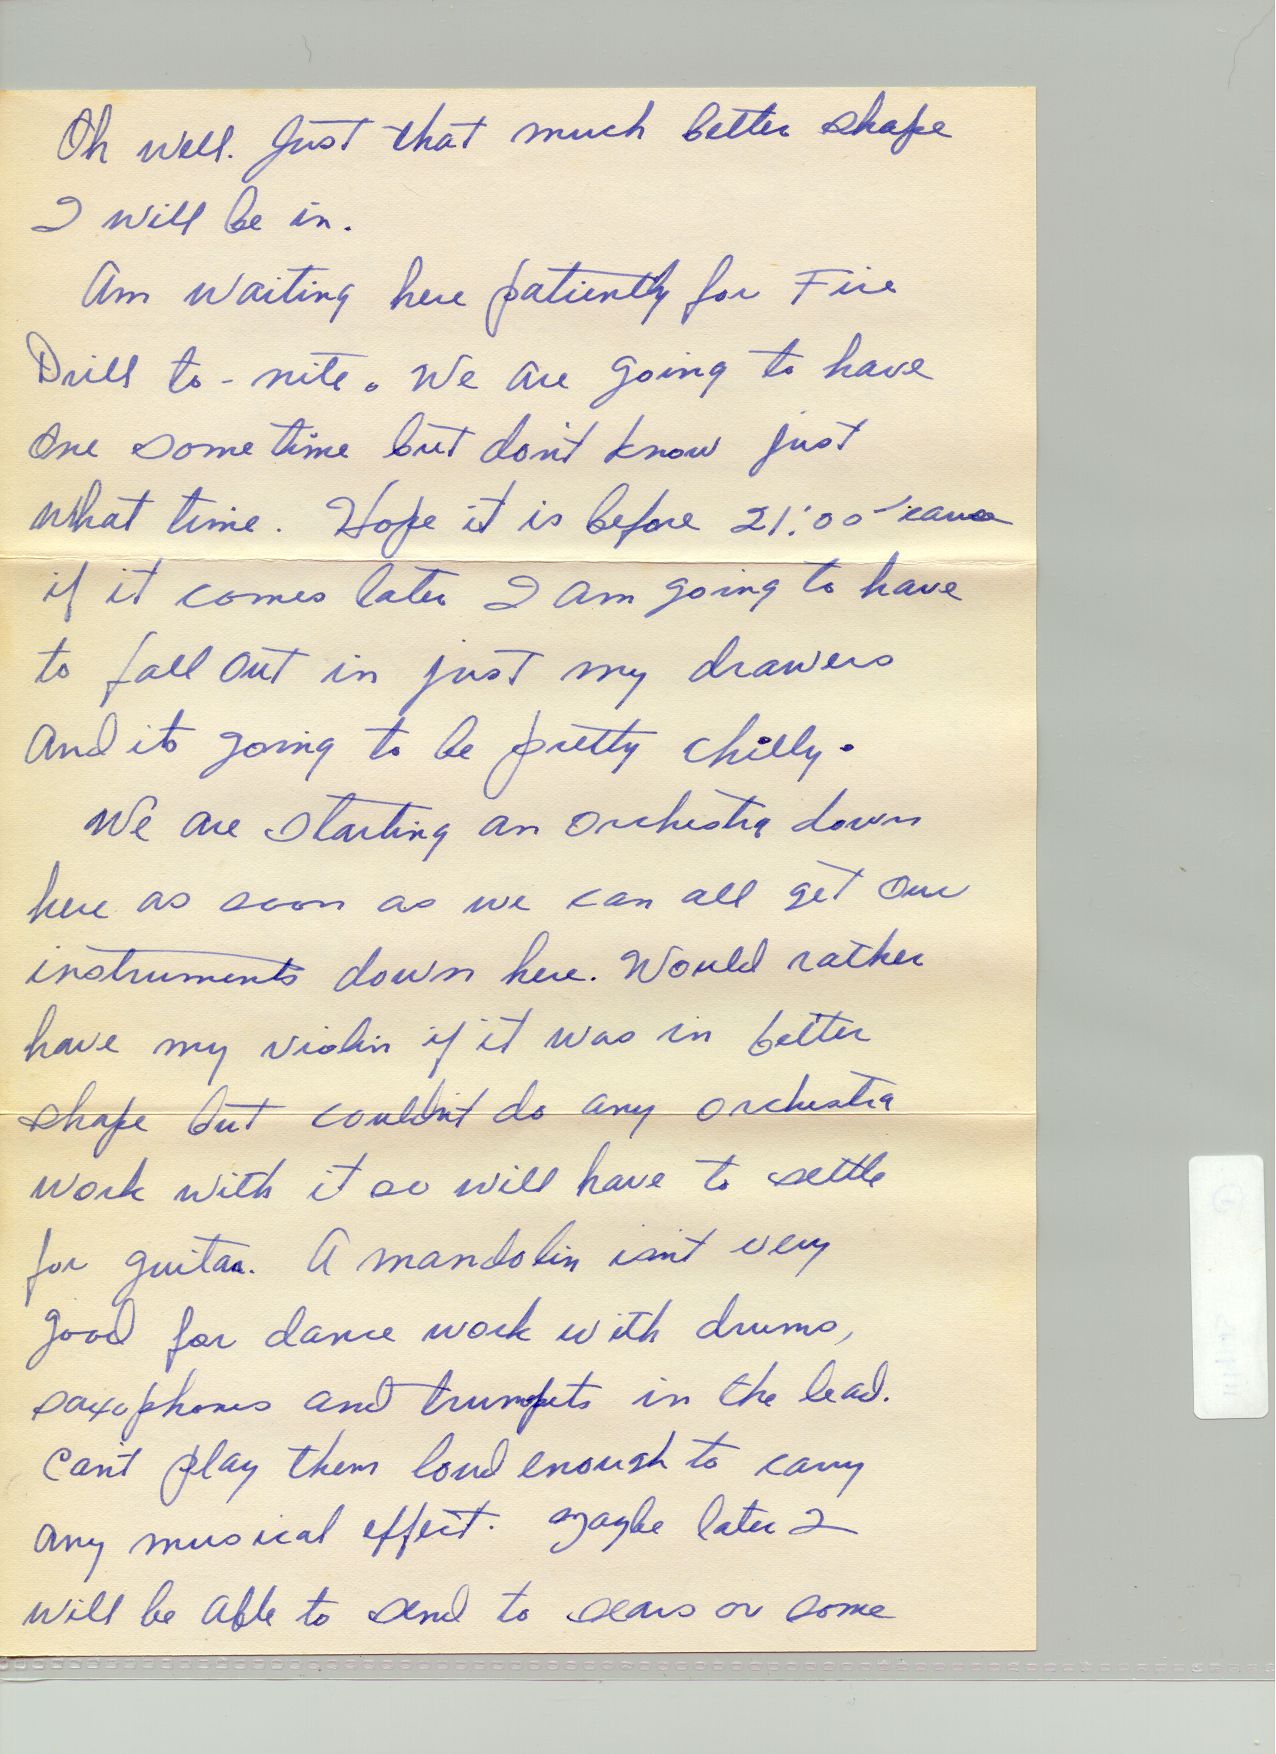 Oh well. Just that much better shape
I will be in.
Am waiting here patiently for Fire
Drill to-nite. We are going to have
one sometime but don't know just
what time. Hope it is before 21:00 'cause
if it comes later I am going to have
to fall out in just my drawers
and its going to be pretty chilly.
We are starting an orchestra down
here as soon as we can all get our
instruments down here. Would rather
have my violin if it was in better
shape but couldn't do any orchestra
work with it so will have to settle
for guitar. A mandolin isn't very
good for dance work with drums,
saxophones and trumpets in the lead.
Can't play them loud enough to carry
any musical effect. Maybe later I
will be able to send to sears or some